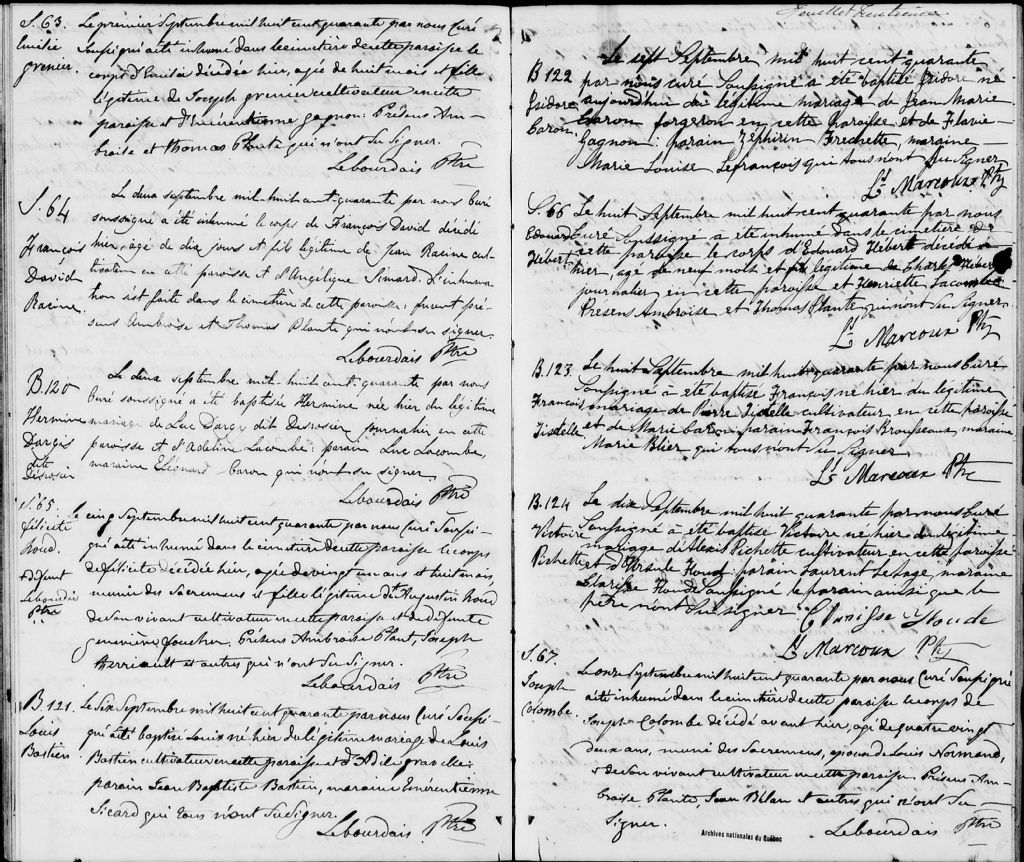 S. 63.
Emilie
grenier.
Le premier Septembre mil huit cent quarante par nous Curé
Soussigné a été inhumé dans le cimetière de cette paroisse le
corps d'Emilie décédée hier, agée de huit mois et fille
légitime de Joseph grenier cultivateur en cette
paroisse et d'Emérentienne gagnon. Présens Am-
broise et thomas Plante qui n'ont Su Signer.
Lebourdais Ptre
S. 64
François
David
Racine
Le deux septembre mil-huit-cent-quarante par nous Curé
soussigné a été inhumé le corps de François David décédé
hier, âgé de dix jours et fils légitime de Jean Racine cul-
tivateur en cette paroisse et d'Angélique Simard. L'inhuma-
tion s'est faite dans le cimetière de cette paroisse: furent pré-
sens Ambroise et Thomas Plante qui n'ont su signer.
Lebourdais Ptre
B. 120
Hermine
Dargis
dit
Desrosier
Le deux septembre mil-huit-cent-quarante par nous
Curé soussigné a été baptisée Hermine née hier du légitime
mariage de Luc Dargy dit Desrosier journalier en cette
paroisse et d'Adeline Lacombe: parain Luc Lacombe,
maraine Léonard Caron qui n'ont su signer.
Lebourdais Ptre
S. 65.
félicité
houd.
+ défunt
Lebourdais
Ptre
Le cinq Septembre mil huit cent quarante par nous Curé Soussi-
gné a été inhumé dans le cimetière de cette paroisse le corps
de félicité décédée hier, agée de vingt un ans et huit mois,
munie des Sacremens et fille légitime de + Augustin houd
de son vivant cultivateur en cette paroisse et de défunte
geneviève foucher. Présens Ambroise Plant, Joseph
Berriault et autres qui n'ont Su Signer.
Lebourdais Ptre
B. 121.
Louis
Bastien
Le Six Septembre mil huit cent quarante par nous Curé Soussi-
gné a été baptisé Louis né hier du légitime mariage de Louis
Bastien cultivateur en cette paroisse et d'Odile gravelle:
parain Jean Baptiste Bastien, maraine Emérentienne
Sicard qui tous n'ont Su Signer.
Lebourdais Ptre
B 122
Isidore
Caron
Le sept Septembre mil huit cent quarante
par nous curé Soussigné a été baptisé Isidore né
aujourdhui du légitime mariage de Jean Marie
Caron forgeron en cette Paroisse et de Flavie
Gagnon: parain Zéphirin Frechette, maraine
Marie Louise Lefrançois qui tous n'ont Su Signer.
Ls Marcoux Ptr
S. 66
Edouard
Hébert
Le huit Septembre mil huit cent quarante par nous
Curé Soussigné a été inhumé dans le cimetière de
cette paroisse le corps d'Edouard Hébert décédé
hier, agé de neuf mois et fils légitime de Charles Hébert
journalier en cette paroisse et Henriette Lacombe
Présens Ambroise et Thomas Plante qui n'ont Su Signer.
Ls Marcoux Ptr
B. 123.
François
Lisdelle
Le huit Septembre mil huit quarante par nous Curé
Soussigné à été baptisé François né hier du légitime
mariage de Pierre Lisdelle cultivateur en cette paroisse
et de Marie Caron. parain François Brousseau maraine
Marie Blier qui tous n'ont Su Signer
Ls Marcoux Ptr
B. 124
Victoire
Pichette
Le dix Septembre mil huit quarante par nous Curé
Soussigné à été baptisé Victoire né hier du légitime
mariage d'Alexis Pichette cultivateur en cette paroisse
et d'Ursule Houd: parain Laurent Lesage, maraine
Clarisse Houde Soussigné le parain ainsi que le
père n'ont Su signer. Clarisse Houde
Ls Marcoux Ptr
S. 67.
Joseph
Colombe.
Le onze Septembre mil huit cent quarante par nous Curé Soussigné
a été inhumé dans le cimetière de cette paroisse le corps de
Joseph Colombe décédé avant hier, agé de quatre vingt
deux ans, muni des Sacremens, époux de Louise Normand,
de Son vivant cultivateur en cette paroisse. Présens Am-
broise Plante, Jean Belan et autres qui n'ont Su
Signer.
Lebourdais Ptre
Archives nationales du Québec